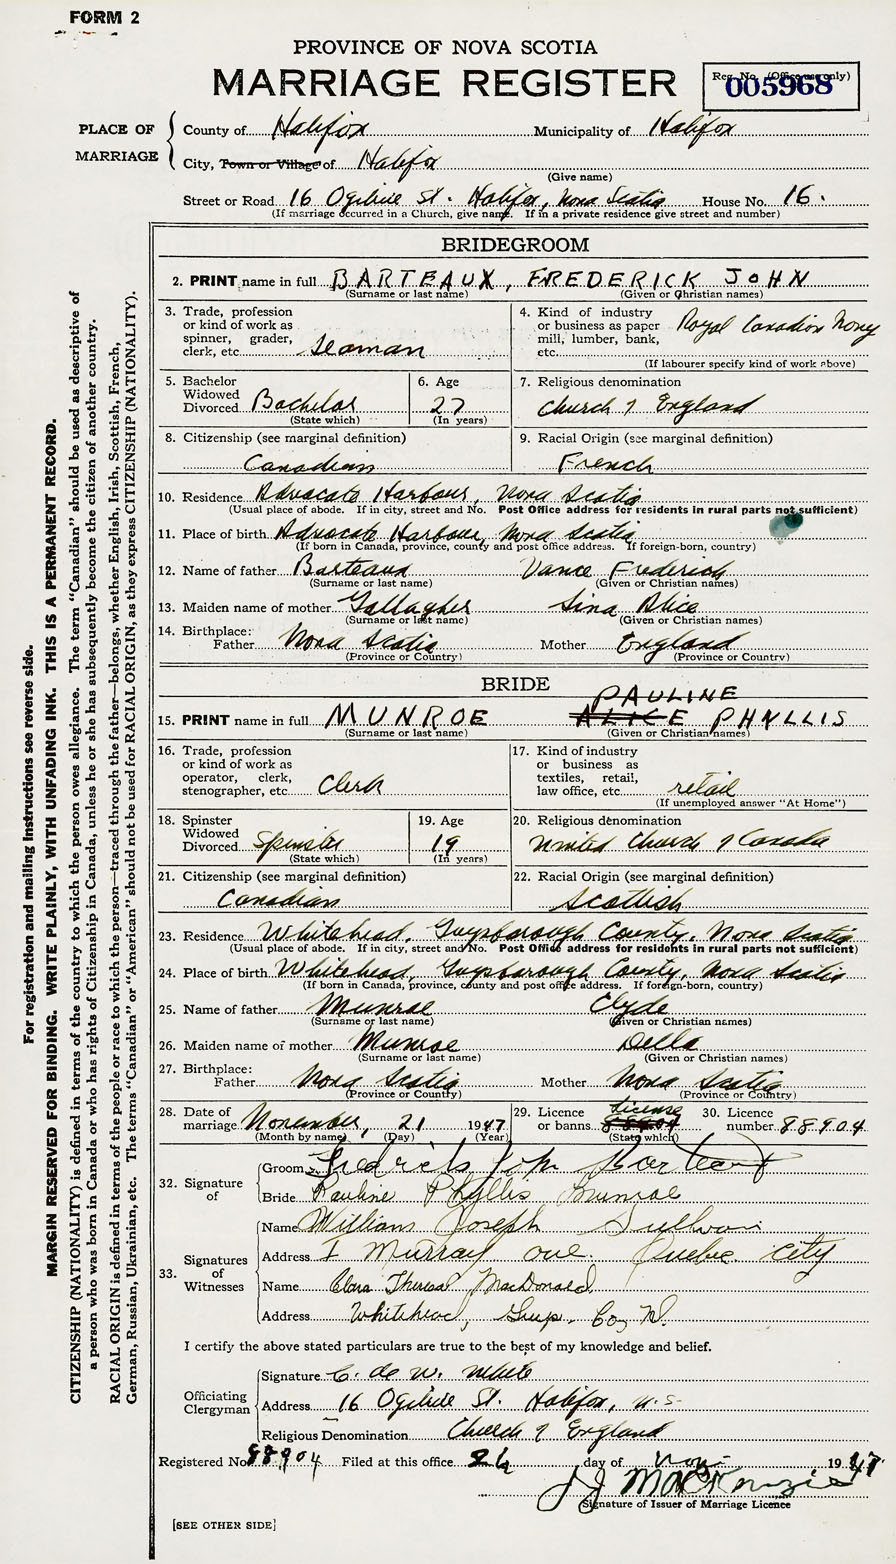 FORM 2
PROVINCE OF NOVA SCOTIA
MARRIAGE REGISTER
Reg. No. (Office use only)
005968
PLACE OF MARRIAGE
County of Halifax Municipality of Halifax
City, Town or Village of Halifax
(Give name)
Street or Road 16 Ogilvie St. Halifax, Nova Scotia House No. 16.
(If marriage occurred in a Church, give name. If in a private residence give street and number)
BRIDEGROOM
2. PRINT name in full BARTEAUX, FREDERICK JOHN
(Surname or last name) (Given or Christian names)
3. Trade, profession or kind of work as spinner, grader, clerk, etc. Seaman
4. Kind of industry or business as paper mill, lumber, bank, etc. Royal Canadian Navy
(If labourer specify kind of work above)
5. Bachelor Widowed Divorced Bachelor
(State which)
6. Age 27
(In years)
7. Religious denomination
Church of England
8. Citizenship (see marginal definition)
Canadian
9. Racial Origin (see marginal definition)
French
10. Residence Advocate Harbour, Nova Scotia
(Usual place of abode. If in city, street and No. Post Office address for residents in rural parts not sufficient)
11. Place of birth Advocate Harbour, Nova Scotia
(If born in Canada, province, county and post office address. If foreign-born, country)
12. Name of father Barteaux Vance Frederick
(Surname or last name) (Given or Christian names)
13. Maiden name of mother Gallagher Lina Alice
(Surname or last name) (Given or Christian names)
14. Birthplace: Father Nova Scotia Mother England
(Province or Country) (Province or Country)
BRIDE
PAULINE
15. PRINT name in full MUNROE ALICE PHYLLIS
(Surname or last name) (Given or Christian names)
16. Trade, profession or kind of work as operator, clerk, stenographer, etc. Clerk
17. Kind of industry or business as textiles, retail, law office, etc. retail
(If unemployed answer "At Home")
18. Spinster Widowed Divorced Spinster
(State which)
19. Age 19
(In years)
20. Religious denomination
United Church of Canada
21. Citizenship (see marginal definition)
Canadian
22. Racial Origin (see marginal definition)
Scottish
23. Residence Whitehead, Guysborough County, Nova Scotia
(Usual place of abode. If in city, street and No. Post Office address for residents in rural parts not sufficient)
24. Place of birth Whitehead, Guysborough County, Nova Scotia
(If born in Canada, province, county and post office address. If foreign-born, country)
25. Name of father Munroe Clyde
(Surname or last name) (Given or Christian names)
26. Maiden name of mother Munroe Della
(Surname or last name) (Given or Christian names)
27. Birthplace: Father Nova Scotia Mother Nova Scotia
(Province or Country) (Province or Country)
28. Date of marriage November, 21 1947
(Month by name) (Day) (Year)
29. Licence or banns License 88904
(State which)
30. Licence number 88904
32. Signature of
Groom Fredrick John Barteaux
Bride Pauline Phyllis Munroe
33. Signatures of Witnesses
Name William Joseph Sullivan
Address 7 Murray ave. Quebec City
Name Clara Theresa MacDonald
Address Whitehead, Guys. Co, N.
I certify the above stated particulars are true to the best of my knowledge and belief.
Officiating Clergyman
Signature C. de W. White
Address 16 Ogilvie St. Halifax, N.S.
Religious Denomination Church of England
Registered No. 88904 Filed at this office 26 day of Nov. 1947
J J MacKenzie
Signature of Issuer of Marriage Licence
[SEE OTHER SIDE]
For registration and mailing instructions see reverse side.
MARGIN RESERVED FOR BINDING. WRITE PLAINLY, WITH UNFADING INK. THIS IS A PERMANENT RECORD.
CITIZENSHIP (NATIONALITY) is defined in terms of the country to which the person owes allegiance. The term "Canadian" should be used as descriptive of
a person who was born in Canada or who has rights of Citizenship in Canada, unless he or she has subsequently become the citizen of another country.
RACIAL ORIGIN is defined in terms of the people or race to which the person—traced through the father—belongs, whether English, Irish, Scottish, French,
German, Russian, Ukrainian, etc. The terms "Canadian" or "American" should not be used for RACIAL ORIGIN, as they express CITIZENSHIP (NATIONALITY).